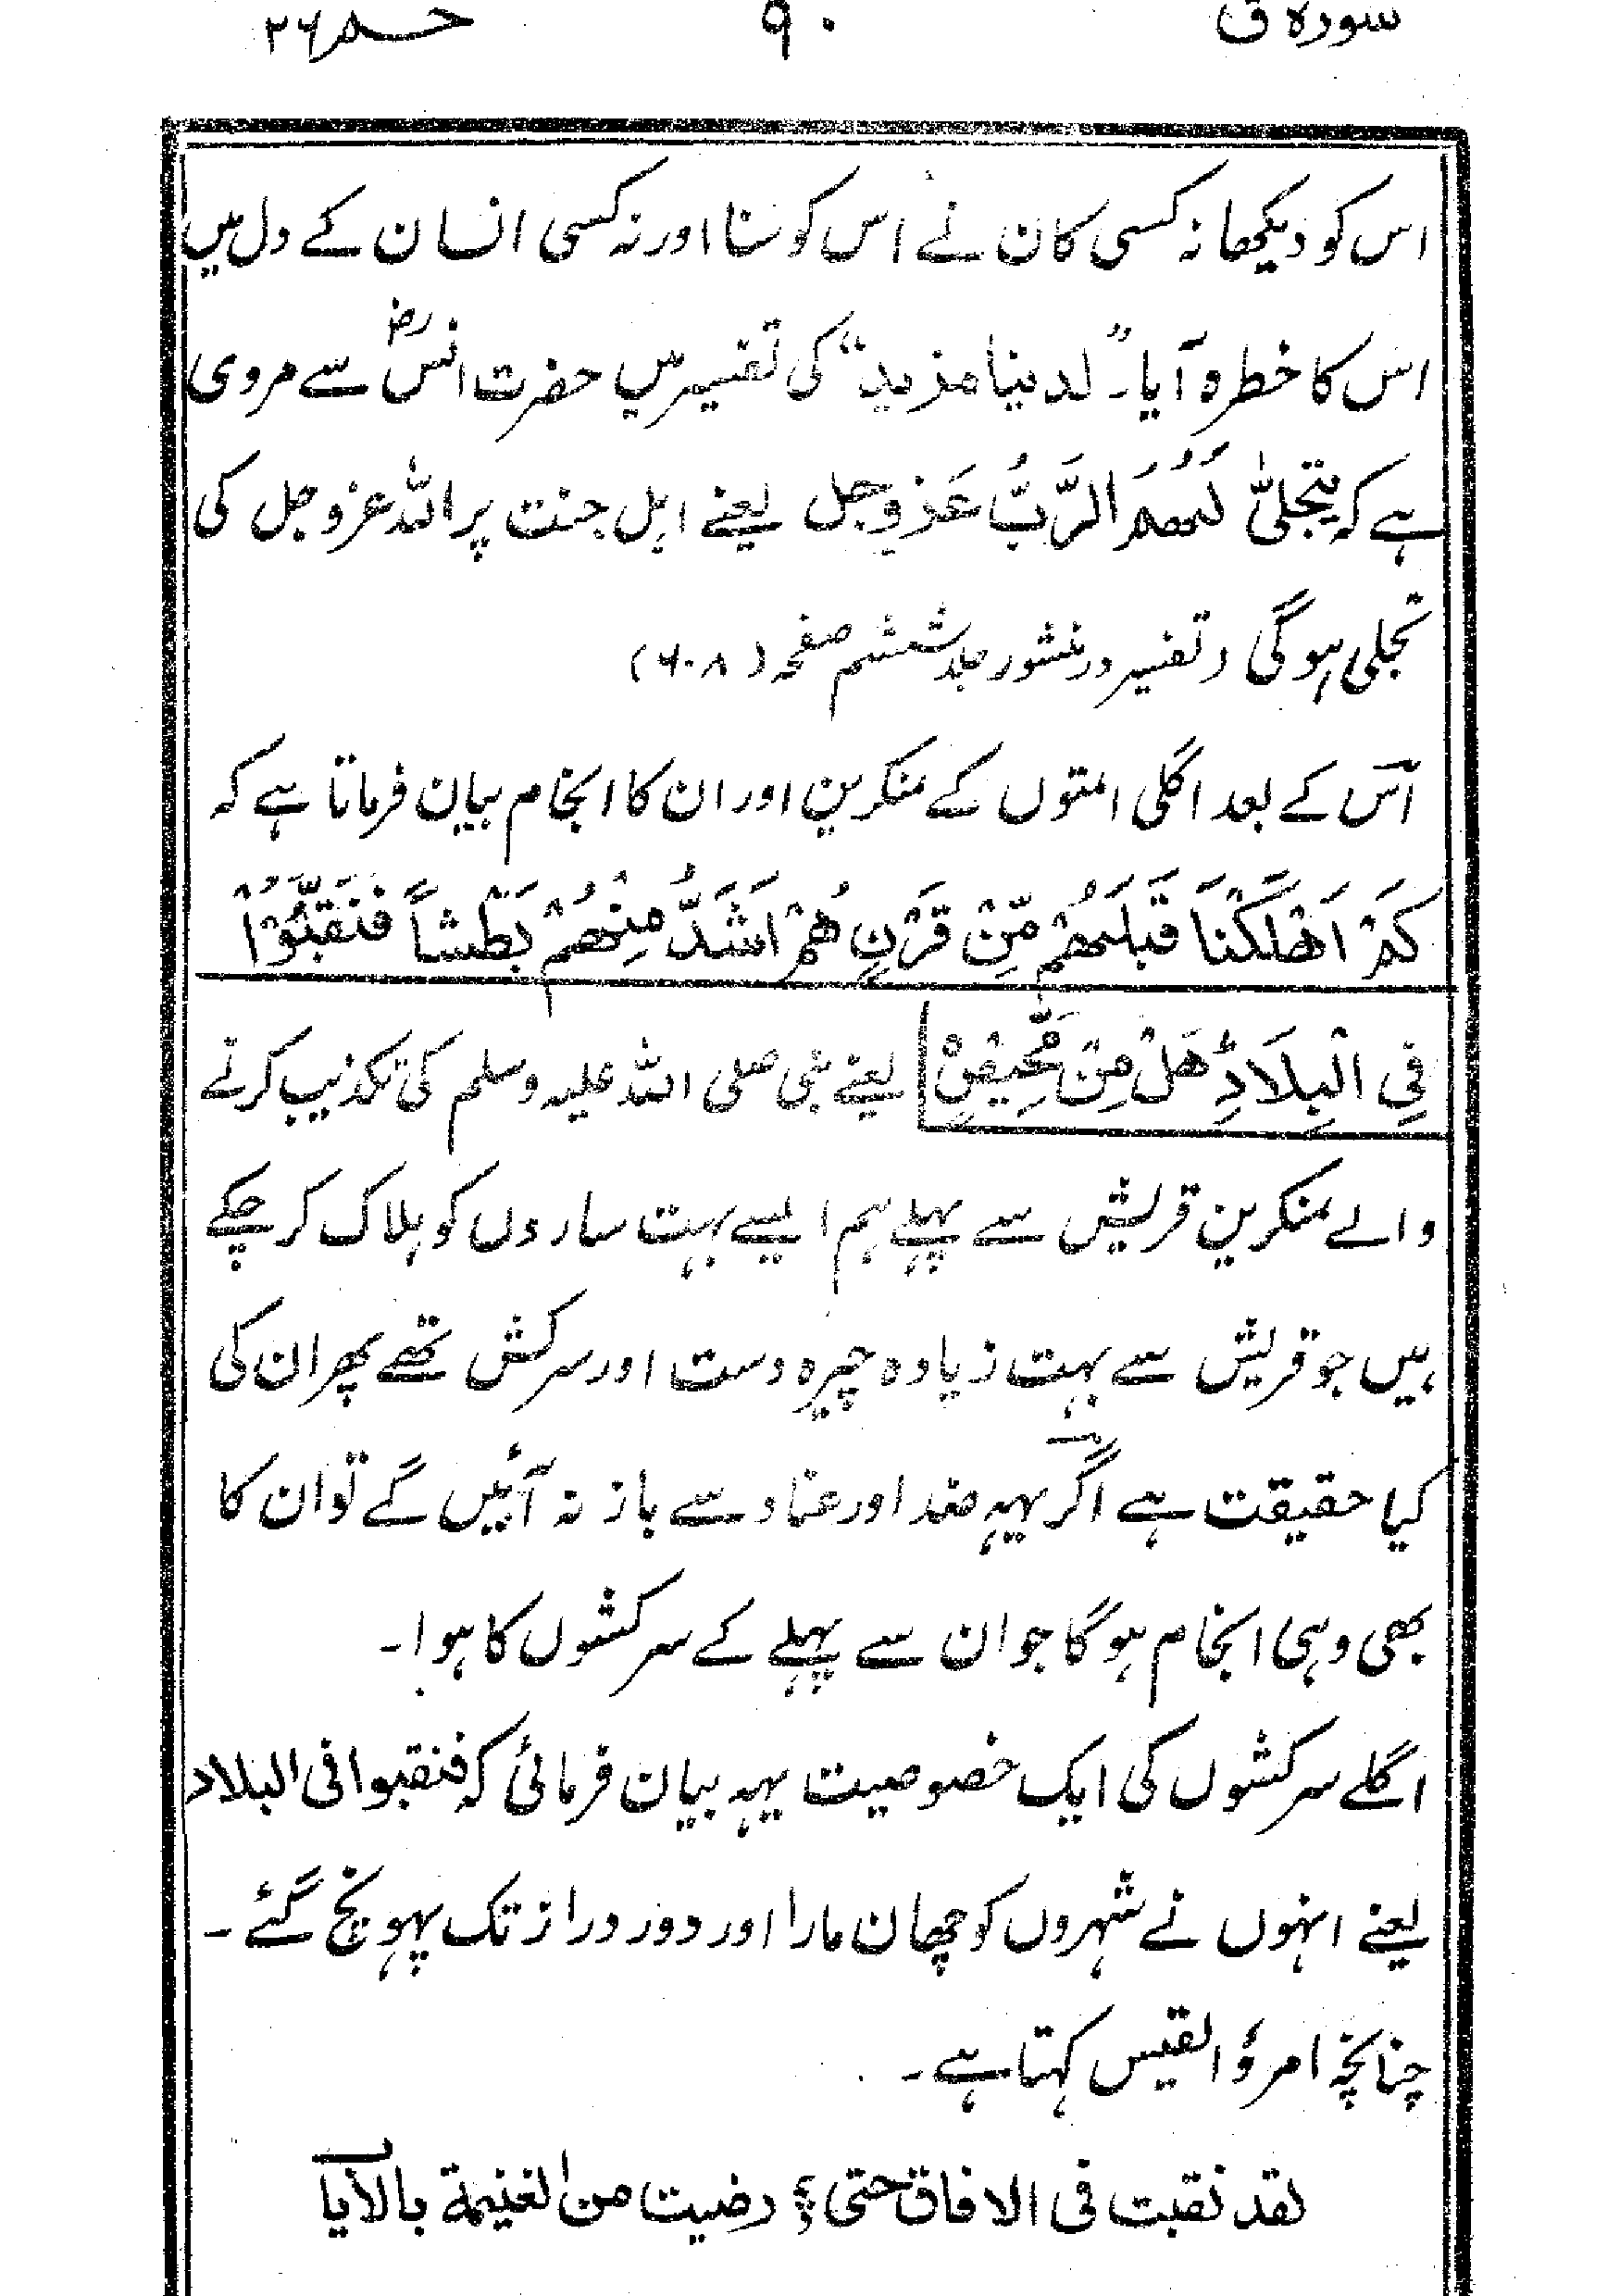 سورہ ق ۹۰ حٰمٓ ۲۶
اس کو دیکھا نہ کسی کان نے اس کو سنا اور نہ کسی انسان کے دل میں
اس کا خطرہ آیا۔ "لدینا مزید" کی تفسیر میں حضرت انسؓ سے مروی
ہے کہ یتجلیّٰ لَهُمُ الرَّبُّ عَزوجل یعنے اہل جنت پر اللہ عزوجل کی
تجلی ہوگی (تفسیر درمنثور جلد ششم صفحہ (۶۰۸)
اس کے بعد اگلی امتوں کے منکرین اور ان کا انجام بیان فرماتا ہے کہ
كَمْ اَهْلَكْنَا قَبْلَهُمْ مِّنْ قَرْنٍ هُمْ اَشَدُّ مِنْهُمْ بَطْشاً فَنَقَّبُوْا
فِي الْبِلَادِؕ هَلْ مِنْ مَّحِيْصٍ یعنے نبی صلی اللہ علیہ وسلم کی تکذیب کرنے
والے منکرین قریش سے پہلے ہم ایسے بہت ساروں کو ہلاک کر چکے
ہیں جو قریش سے بہت زیادہ چیرہ دست اور سرکش تھے پھر ان کی
کیا حقیقت ہے اگر یہہ ضد اور عناد سے باز نہ آئیں گے تو ان کا
بھی وہی انجام ہوگا جو ان سے پہلے کے سرکشوں کا ہوا۔
اگلے سرکشوں کی ایک خصوصیت یہہ بیان فرمائی کہ فنقبوا فی البلاد
یعنے انہوں نے شہروں کو چھان مارا اور دور دراز تک پہونچ گئے۔
چنانچہ امرؤ القیس کہتا ہے۔
لقد نقبت فی الافاق حتی ؛ رضیت من الغنیمة بالایاب